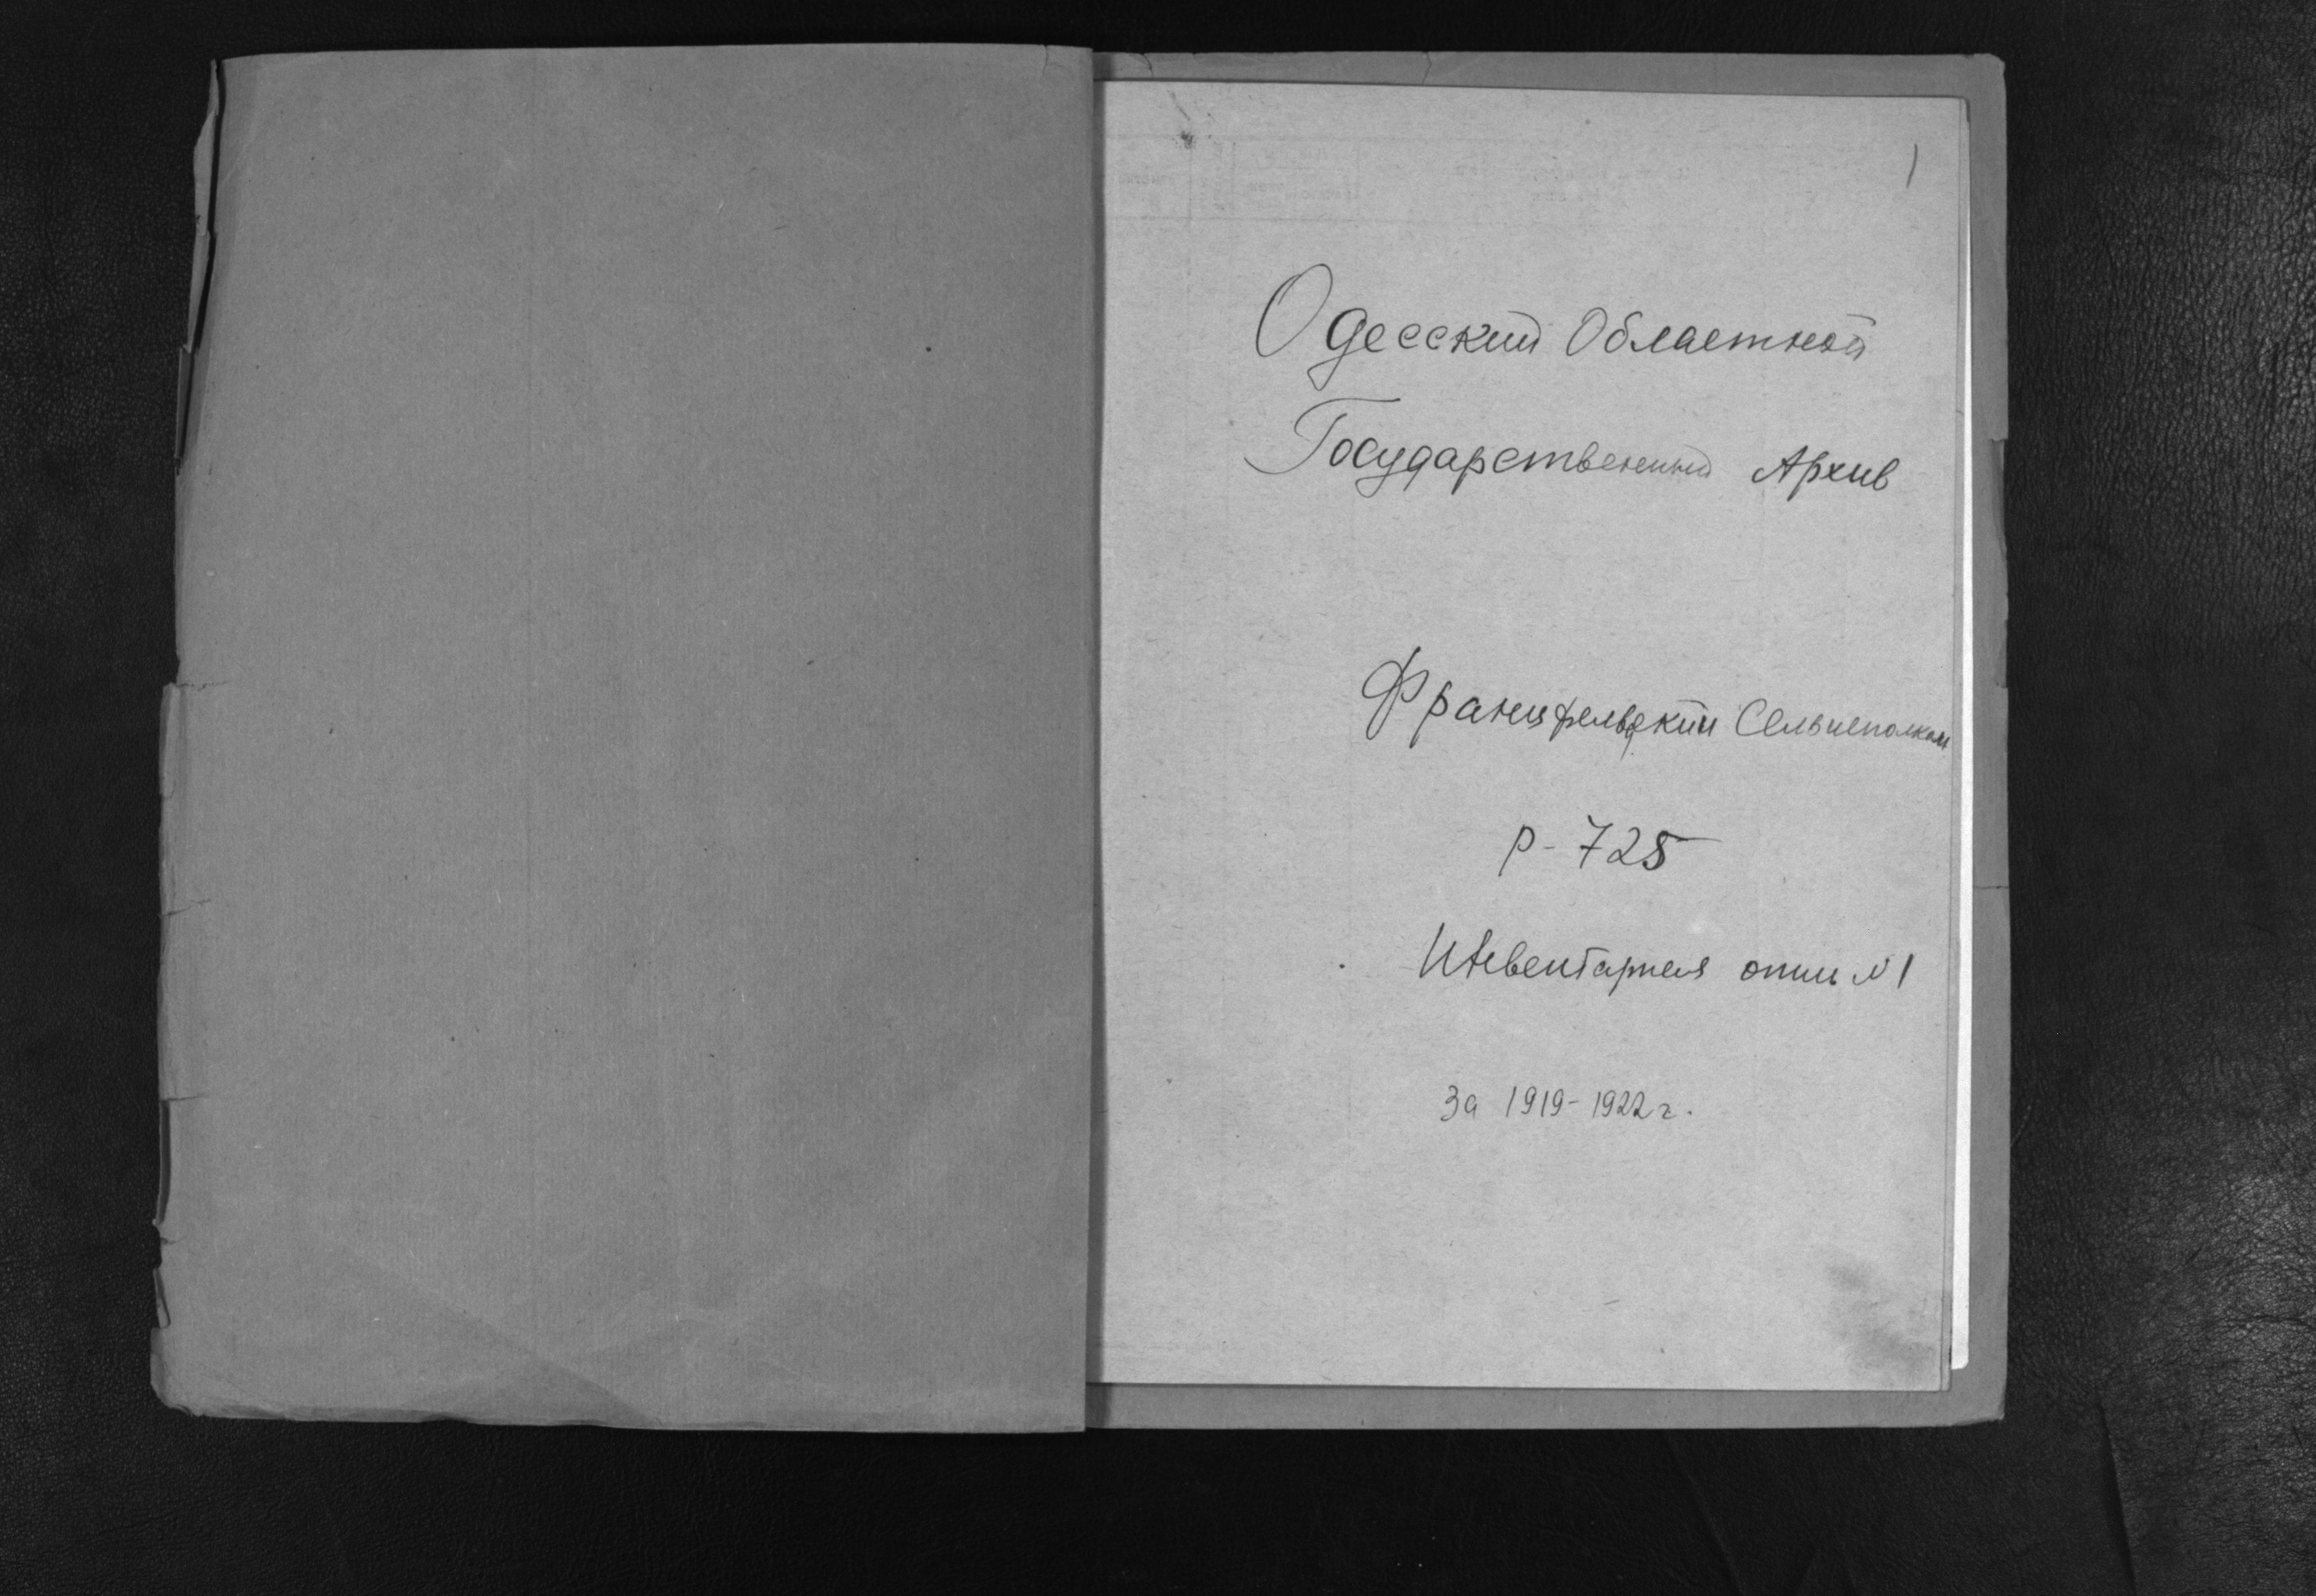 1
Одесский Областной
Государственный Архив
Францфельдский Сельисполком
р-725
Инвентарная опись №1
За 1919-1922 г.